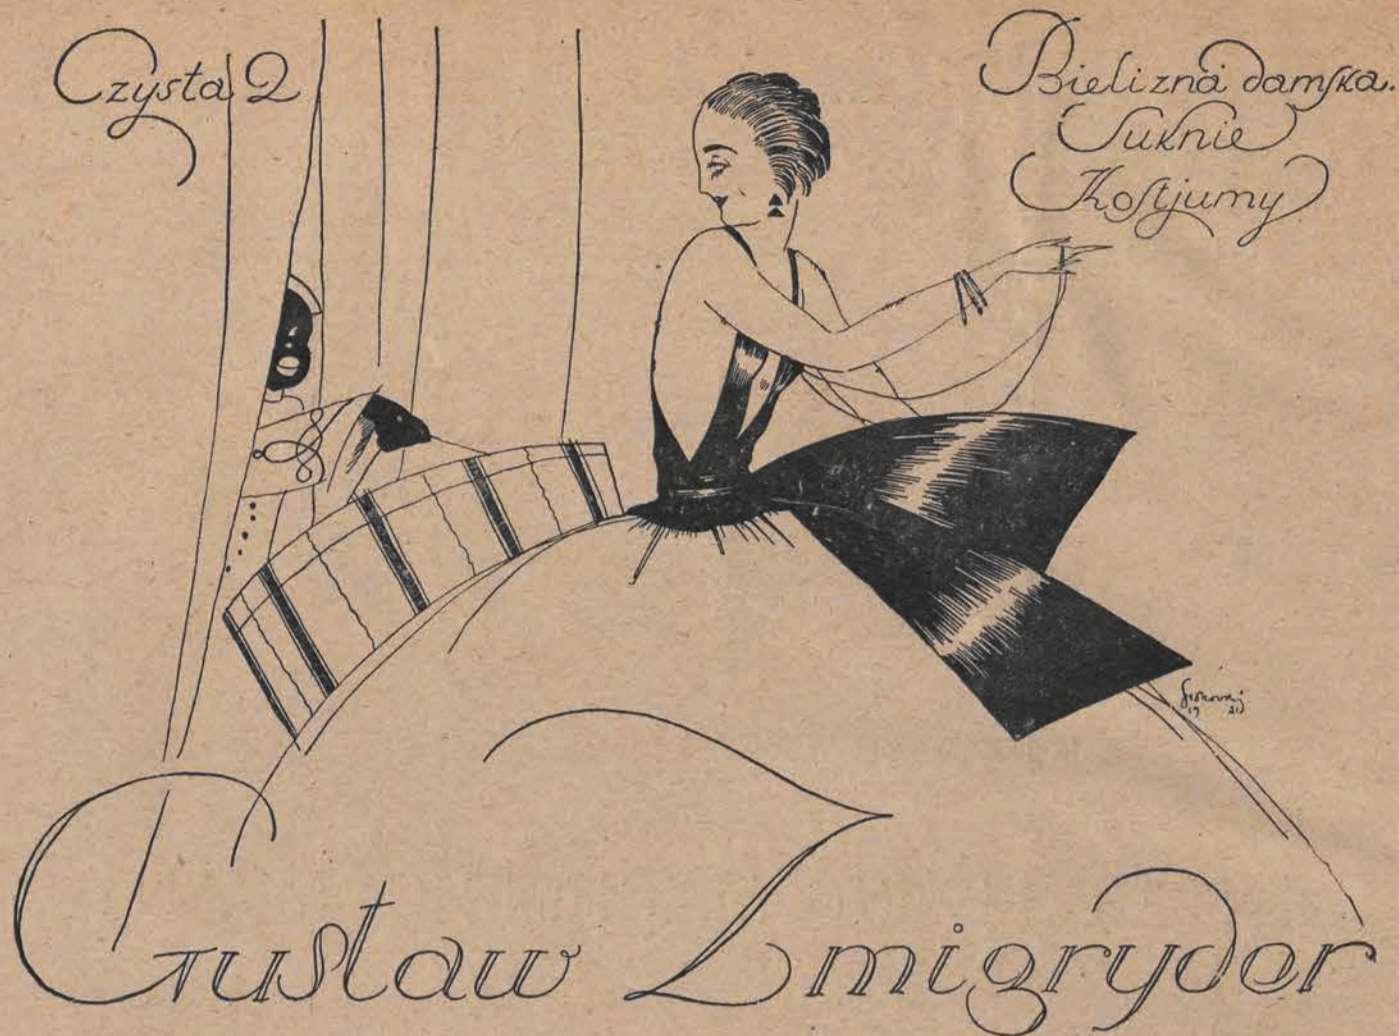 Czysta 2
Bielizna damska.
Suknie
Kostjumy
Gustaw Zmigryder